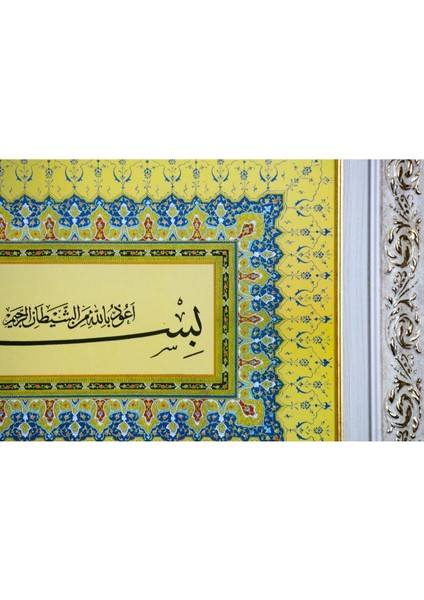 اَعُوذُ بِاللّٰهِ مِنَ الشَّيْطَانِ الرَّجِيمِ
بِسْـ